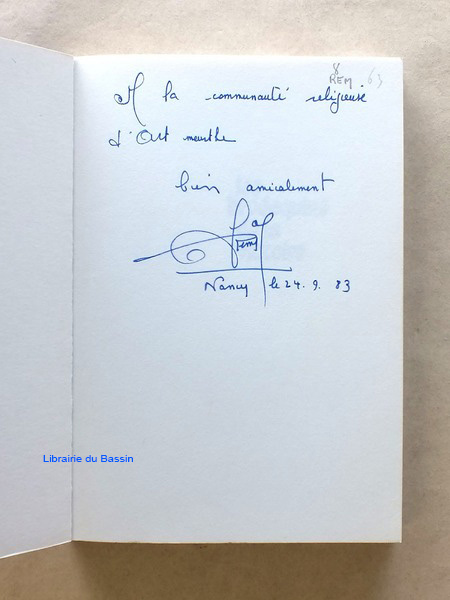 8
REM 63
A la communauté religieuse
d'Art meurthe
bien amicalement
Nancy le 24.9.83
Librairie du Bassin